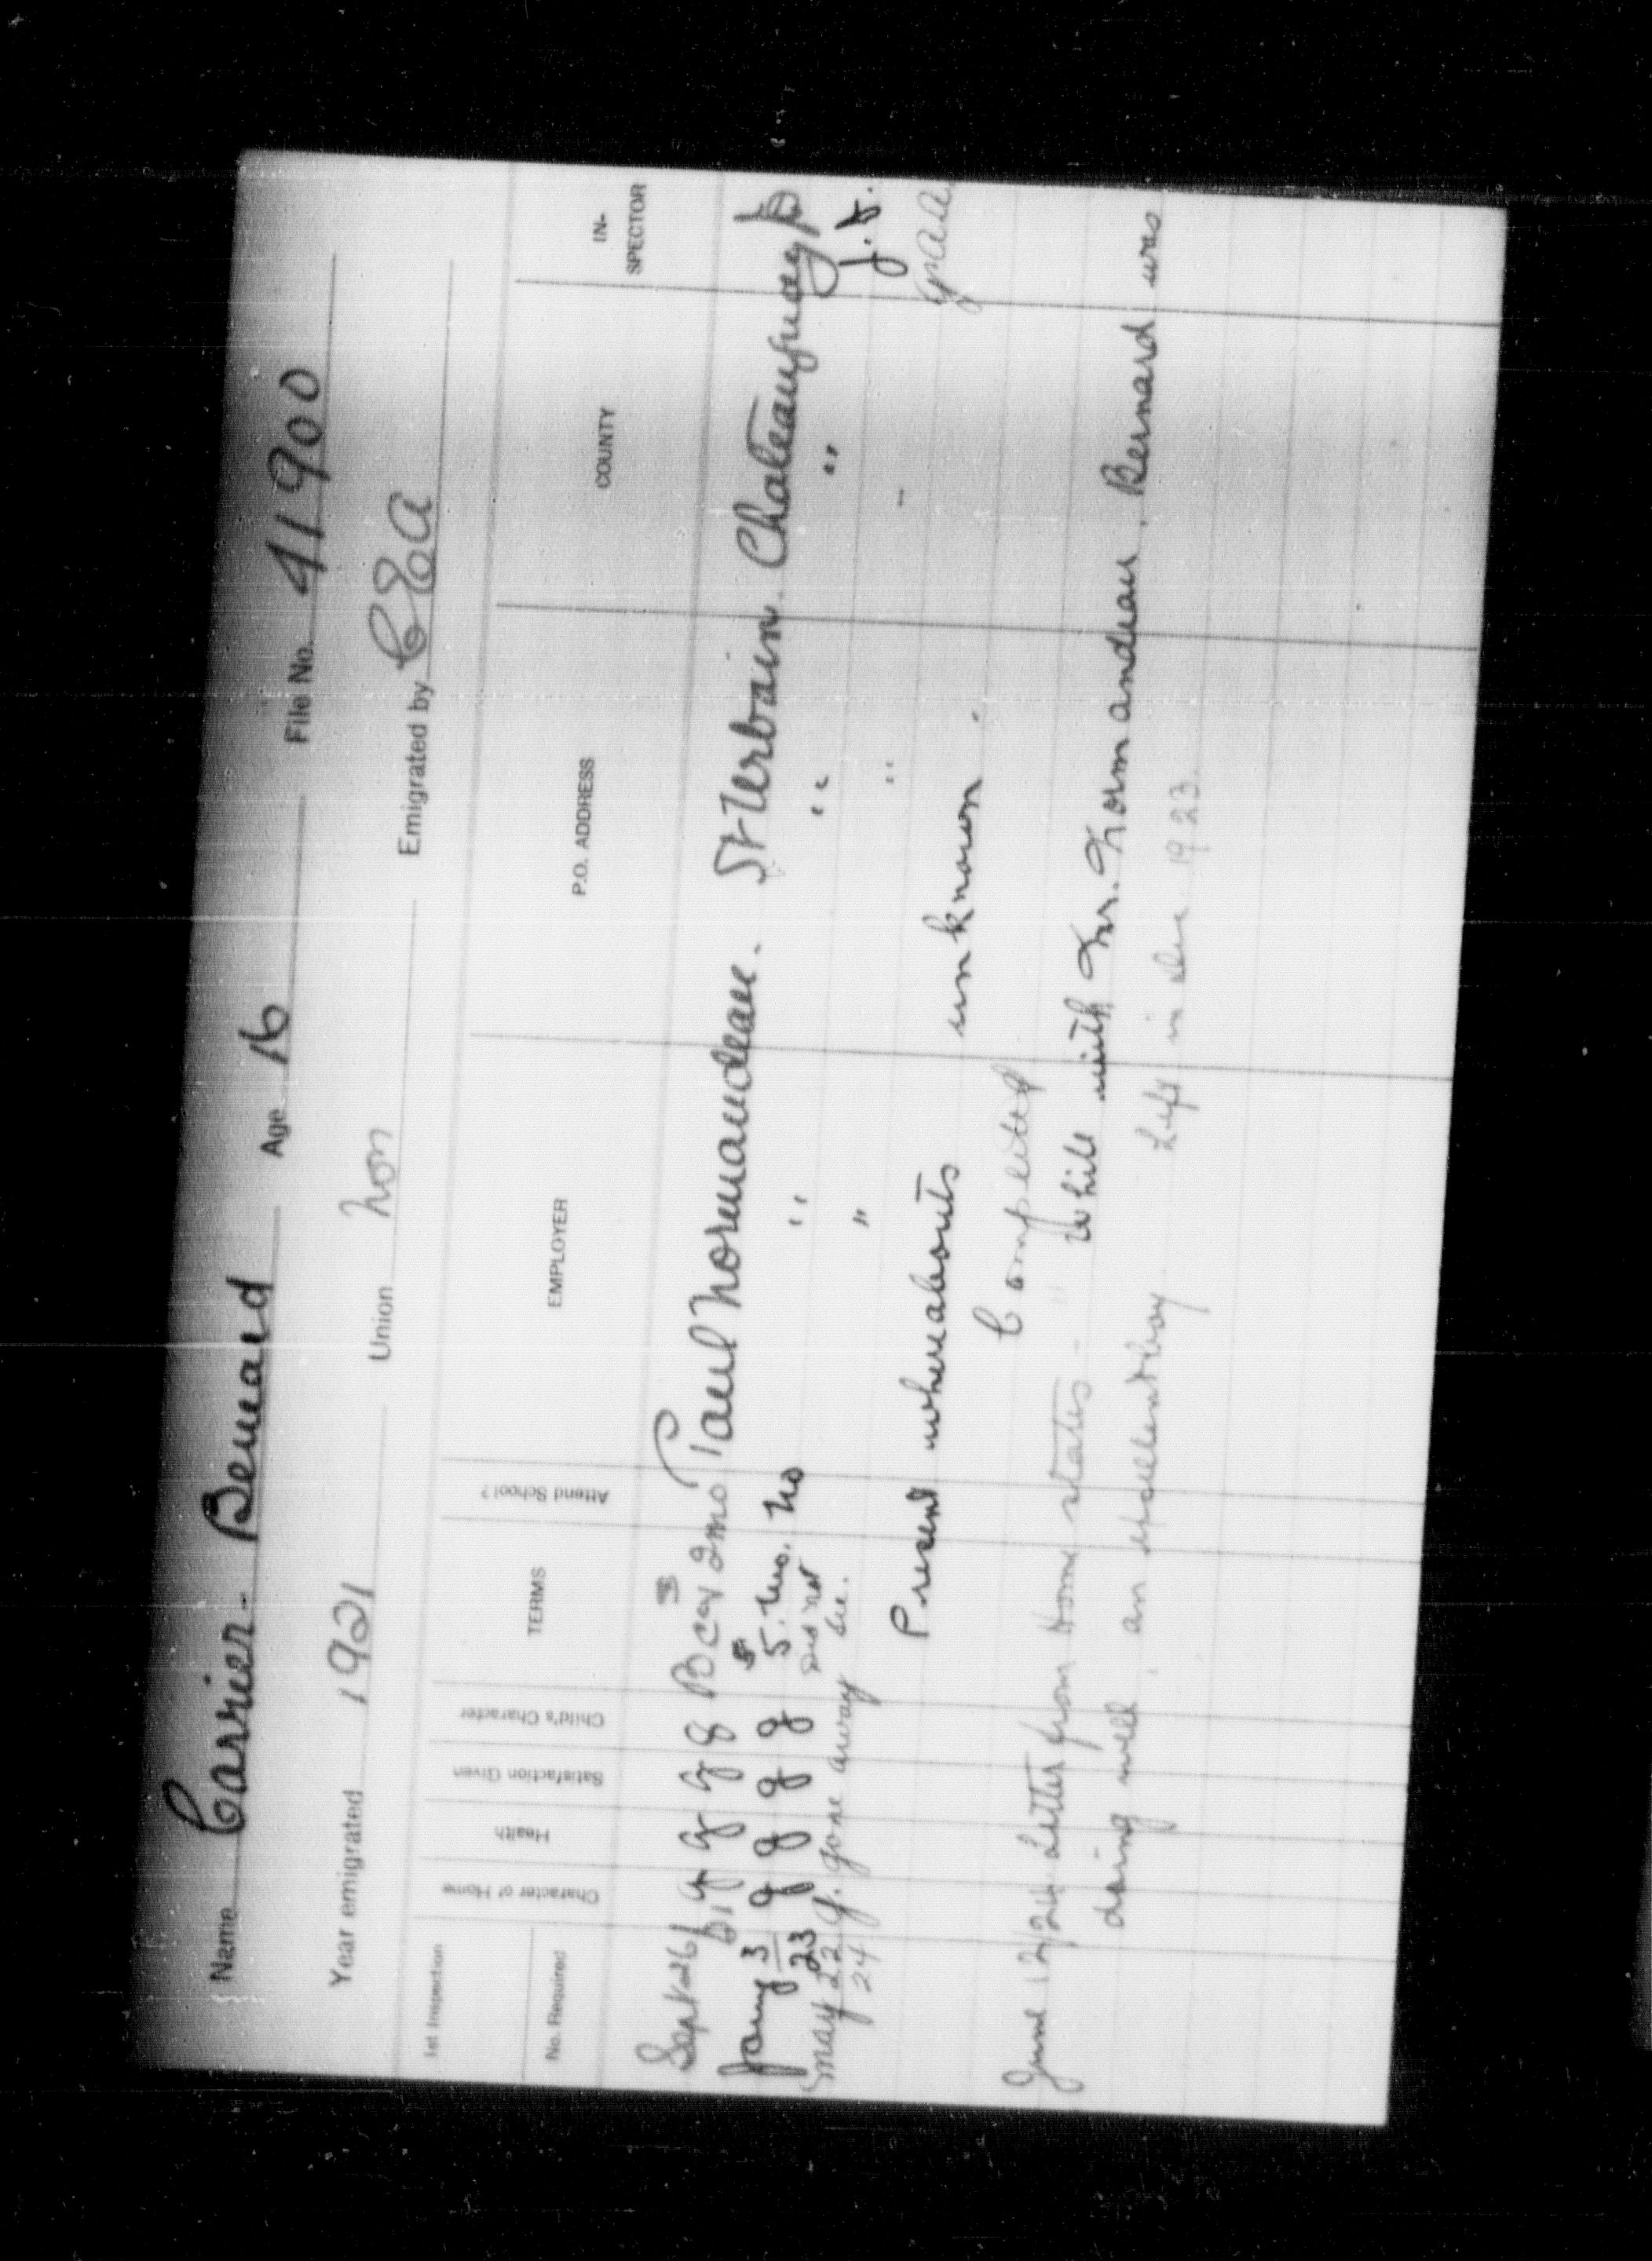 Name Carrier - Bernard Age 16 File No. 41900
Year emigrated 1921 Union non Emigrated by CEA
1st Inspection
No. Required
Character of Home
Health
Satisfaction Given
Child's Character
TERMS
Attend School?
EMPLOYER
P.O. ADDRESS
COUNTY
IN-
SPECTOR
Sept 26/21 g g g g B C & 3 2 mo Paul Normandeau. St Urbain. Chateauguay
Jany 3/23 g g g g 5. mo. no " " " J. F.
May 22/24 g. gone away Did not see. " "
Present whereabouts unknown.
Completed
June 12/24 Letter from Home states - " While with Mr. Normandeau, Bernard was
doing well, an excellent boy. Left in Dec 1923.